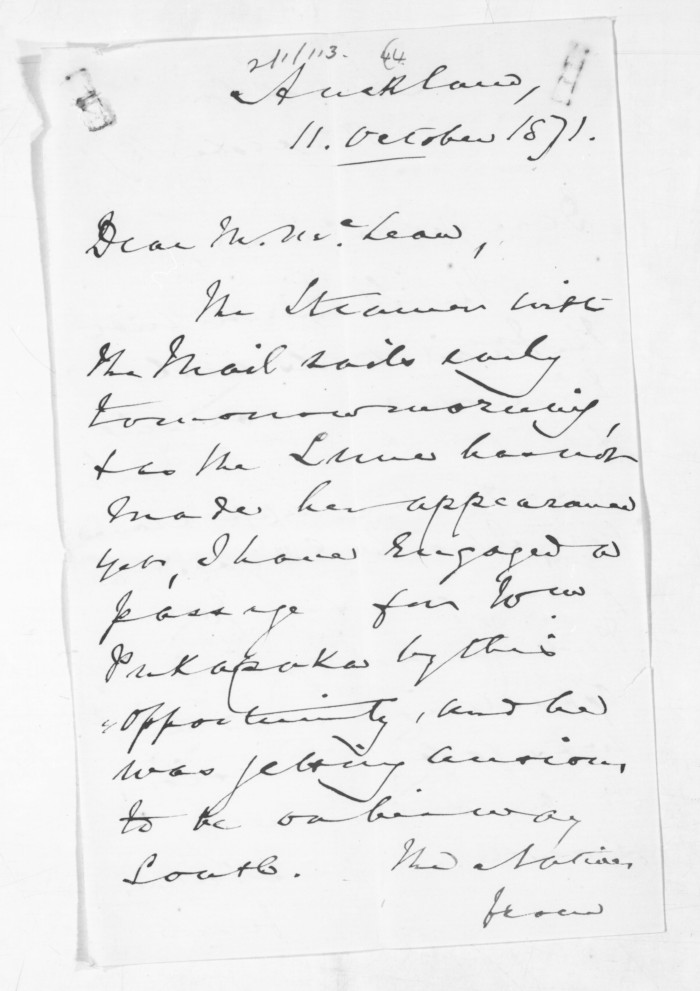 2/1/113. 44
Auckland,
11. October 1871.
Dear Mr. McLean,
The Steamer with
the Mail sails early
tomorrow morning,
& as the Luna has not
made her appearance
yet, I have Engaged a
passage for
Pukapuka by this
opportunity, and he
was getting anxious
to be on his way
South. The Natives
from